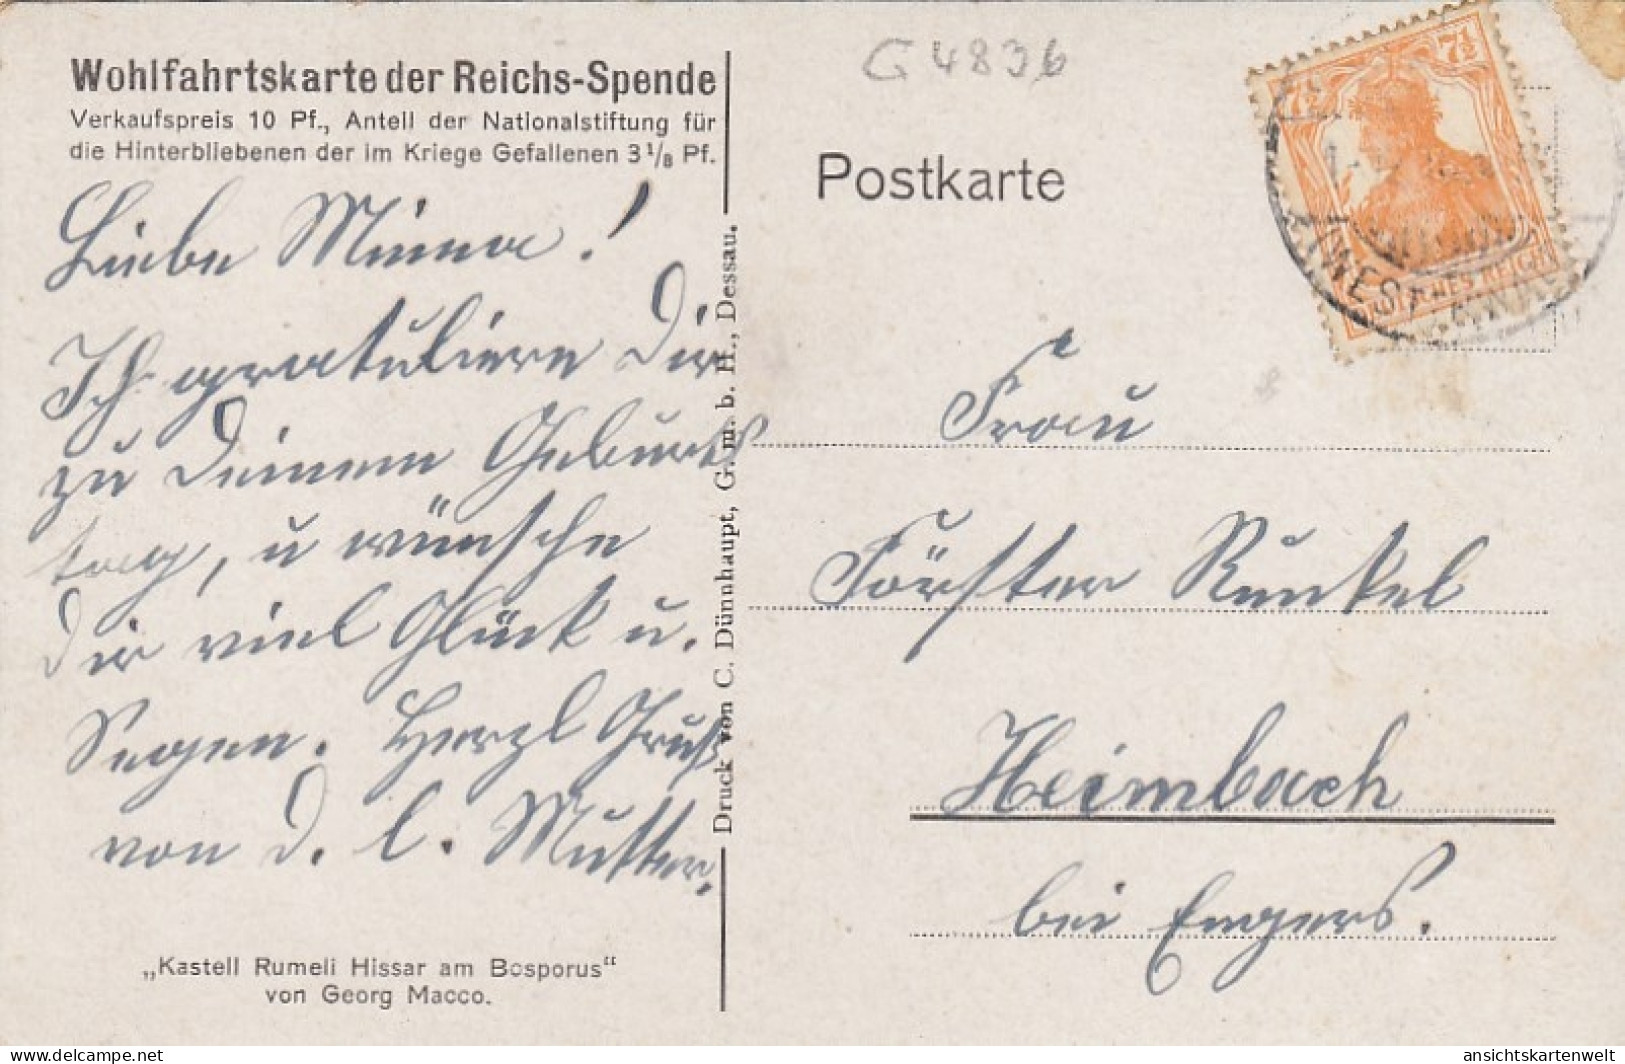 Wohlfahrtskarte der Reichs-Spende
Verkaufspreis 10 Pf., Anteil der Nationalstiftung für
die Hinterbliebenen der im Kriege Gefallenen 3 1/8 Pf.
Liebe Minna!
Ich gratuliere Dir
zu Deinem Geburts
tag, u wünsche
Dir viel Glück u.
Segen. Herzl Gruß
von d. l. Mutter.
„Kastell Rumeli Hissar am Bosporus“
von Georg Macco.
Druck von C. Dünnhaupt, G. m. b. H., Dessau.
G 4836
Postkarte
7½
7½
DEUTSCHES REICH
Frau
Förster Runkel
Heimbach
bei Engers.
delcampe.net
ansichtskartenwelt